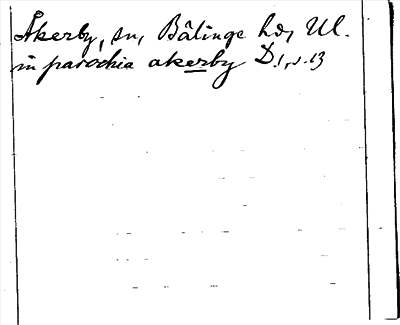 Åkerby, sn, Bälinge hd, Ul.
in parochia akerby D.1, s. 13